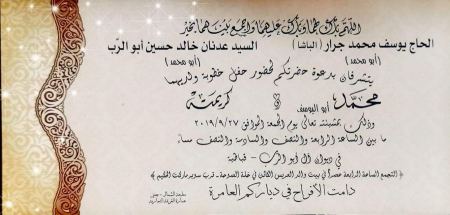 اللهم بارك لهما وبارك عليهما واجمع بينهما بخير
الحاج يوسف محمد جرار (الباشا) السيد عدنان خالد حسين أبو الرب
(أبو محمد) (أبو محمد)
يتشرفان بدعوة حضرتكم لحضور حفل خطوبة ولديهما
محمد أبو اليوسف و كريمته
وذلك بمشيئته تعالى يوم الجمعة الموافق ٢٠١٩/٩/٢٧
ما بين الساعة الرابعة والنصف والسادسة والنصف مساء
في ديوان آل أبو الرب - قباطية
(التجمع الساعة الرابعة عصراً في بيت والد العريس الكائن في خلة الصوحة - قرب سوبر ماركت)
دامت الأفراح في دياركم العامرة